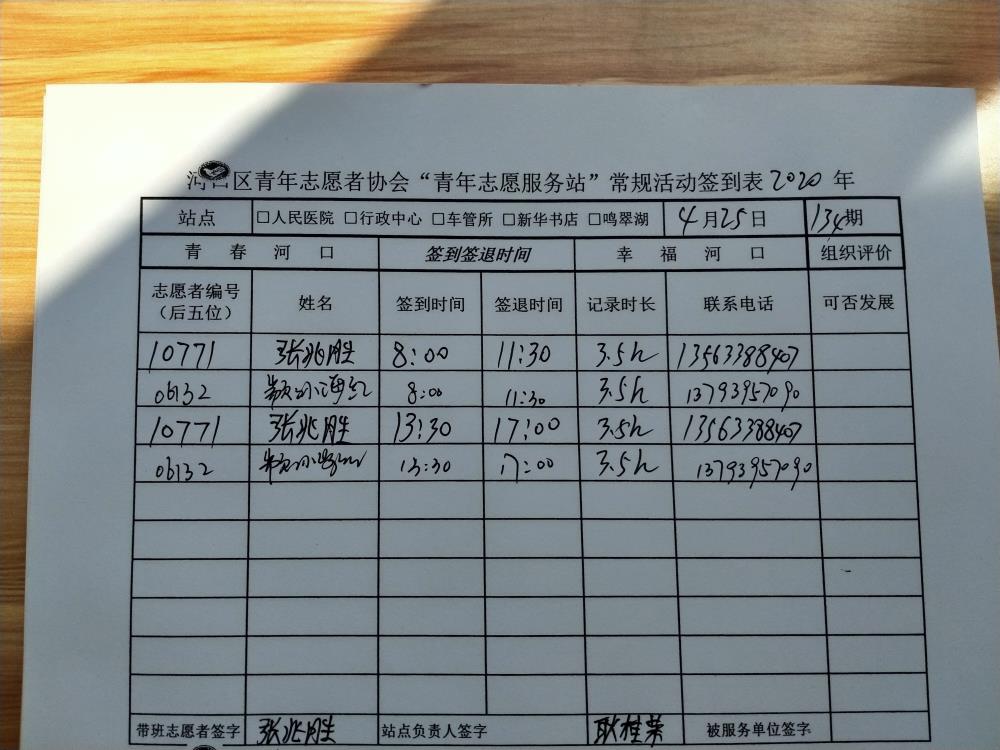 河口区青年志愿者协会“青年志愿服务站”常规活动签到表2020年
站点 □人民医院 □行政中心 □车管所 □新华书店 □鸣翠湖 4月25日 134期
青春河口 签到签退时间 幸福河口 组织评价
志愿者编号（后五位） 姓名 签到时间 签退时间 记录时长 联系电话 可否发展
10771 张兆胜 8:00 11:30 3.5h 13563388407
06132 8:00 11:30 3.5h 13793957090
10771 张兆胜 13:30 17:00 3.5h 13563388407
06132 13:30 17:00 3.5h 13793957090
带班志愿者签字 张兆胜 站点负责人签字 耿桂荣 被服务单位签字